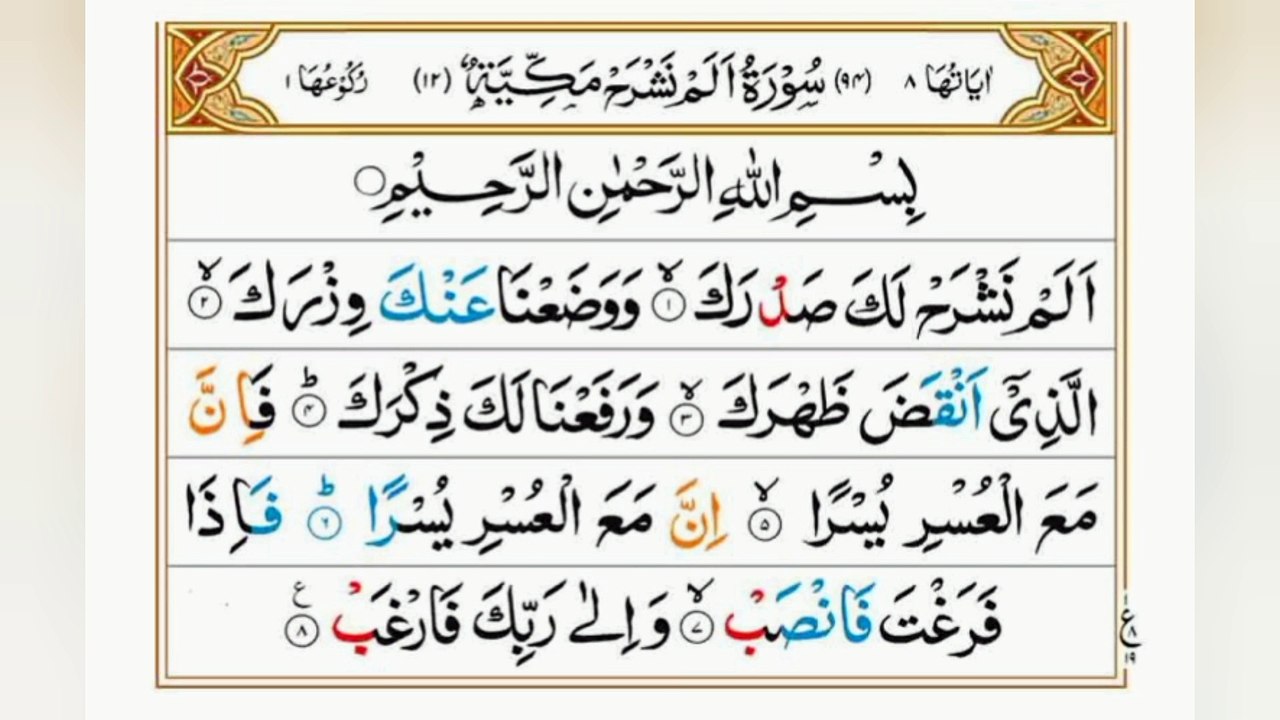 اٰیَاتُهَا ۸ (۹۴) سُوْرَةُ اَلَمْ نَشْرَحْ مَكِّيَّةٌ (۱۲) رُكُوْعُهَا ۱
بِسْمِ اللّٰهِ الرَّحْمٰنِ الرَّحِيْمِ ○
اَلَمْ نَشْرَحْ لَكَ صَدْرَكَ ۙ﴿۱﴾ وَوَضَعْنَا عَنْكَ وِزْرَكَ ۙ﴿۲﴾
الَّذِيْۤ اَنْقَضَ ظَهْرَكَ ۙ﴿۳﴾ وَرَفَعْنَا لَكَ ذِكْرَكَ ؕ﴿۴﴾ فَاِنَّ
مَعَ الْعُسْرِ يُسْرًا ۙ﴿۵﴾ اِنَّ مَعَ الْعُسْرِ يُسْرًا ؕ﴿۶﴾ فَاِذَا
فَرَغْتَ فَانْصَبْ ۙ﴿۷﴾ وَ اِلٰى رَبِّكَ فَارْغَبْ ﴿۸﴾ ع
۱
ع
۸
۱۹